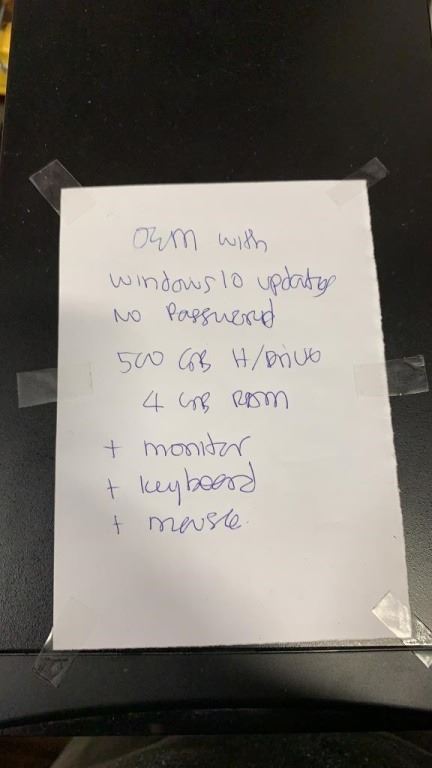 OEM with
windows 10 updates
No Password
500 GB H/Drive
4 GB RAM
+ monitor
+ keyboard
+ mouse.